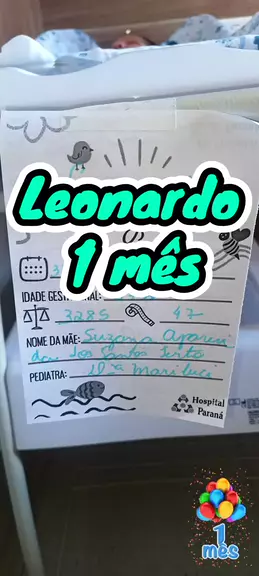 Leonardo
1 mês
IDADE GEST
3285 47
NOME DA MÃE: Suzana Apareci
da dos Santos
PEDIATRA: Drª Mariluci
Hospital
Paraná
1
mês